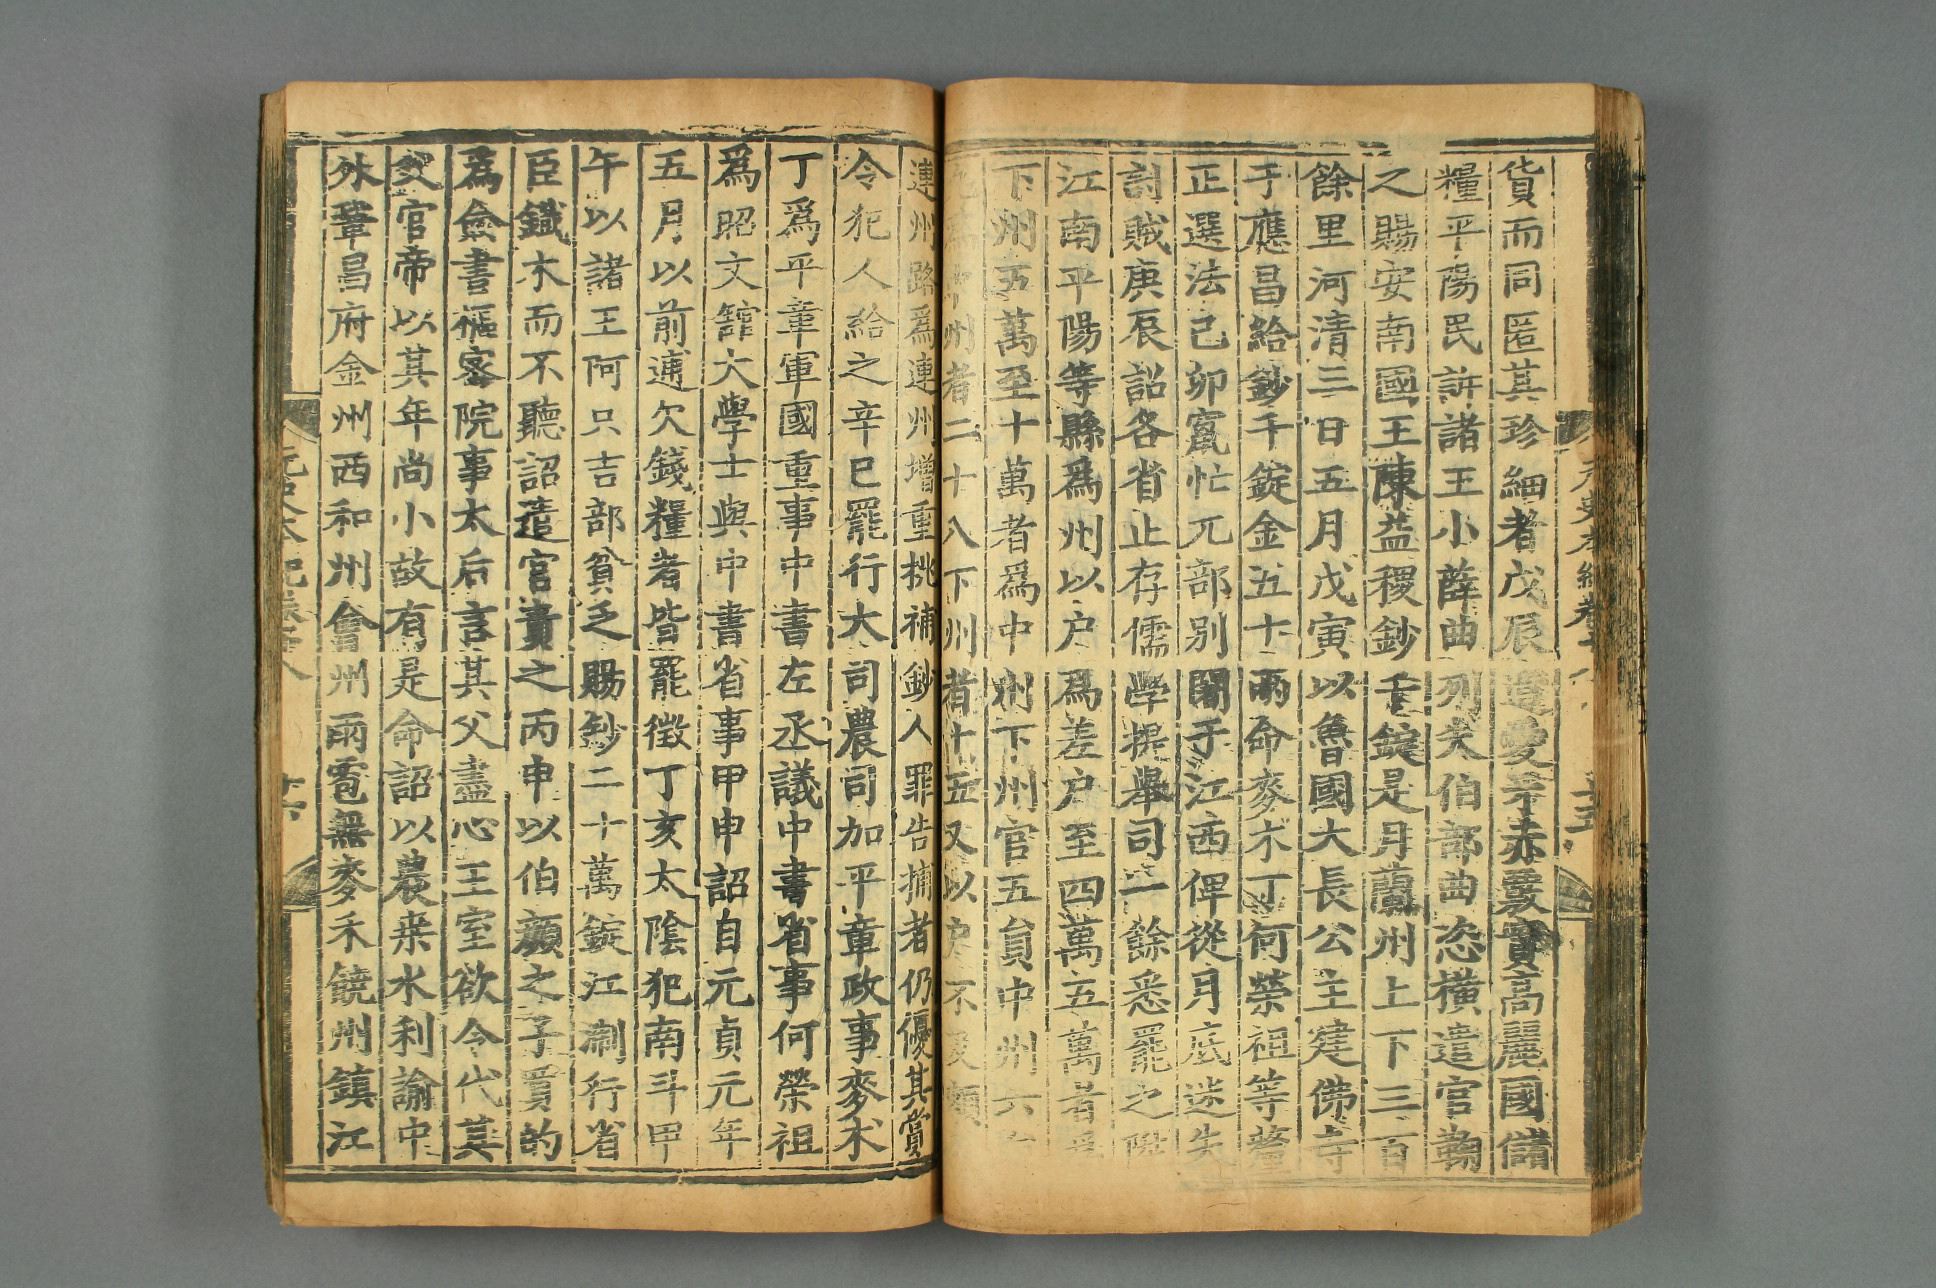 貨而同匿其珍細者戊辰遣愛牙赤覈實高麗國儲
糧平陽民訴諸王小薛曲列失伯部曲恣橫遣官鞫
之賜安南國王陳益稷鈔千錠是月蘭州上下三百
餘里河清三日五月戊寅以魯國大長公主建佛寺
于應昌給鈔千錠金五十兩命麥朮丁何榮祖等釐
正選法己卯寘忙兀部別闍于江西俾從月底迷失
討賊庚辰詔各省止存儒學提舉司一餘悉罷之陞
江南平陽等縣爲州以户爲差户至四萬五萬者爲
下州五萬至十萬者爲中州下州官五員中州六
州者二十八下州者十五又以户不及額
連州路爲連州增重挑補鈔人罪告捕者仍優其賞
令犯人給之辛巳罷行大司農司加平章政事麥朮
丁爲平章軍國重事中書左丞議中書省事何榮祖
爲昭文館大學士與中書省事甲申詔自元貞元年
五月以前逋欠錢糧者皆罷徵丁亥太陰犯南斗甲
午以諸王阿只吉部貧乏賜鈔二十萬錠江淛行省
臣鐵木而不聽詔遣官責之丙申以伯顏之子買的
爲僉書樞密院事太后言其父盡心王室欲令代其
父官帝以其年尚小故有是命詔以農桒水利諭中
外鞏昌府金州西和州會州雨雹無麥禾饒州鎮江